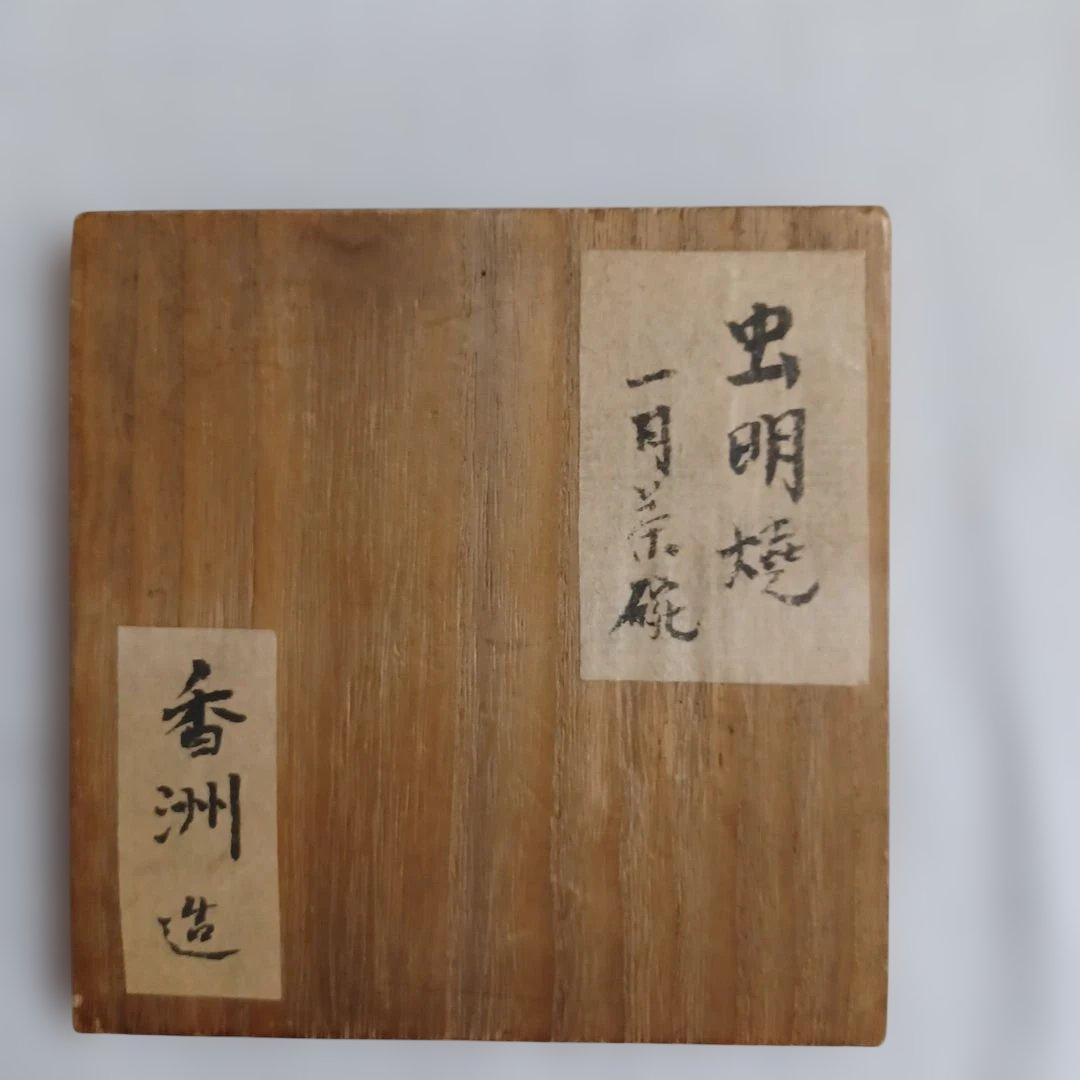 虫明燒
一月茶碗
香洲造